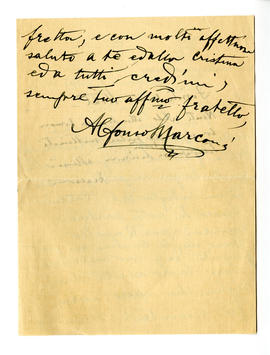 fretta, e con molti affettuosi
saluto a te ed alla Cristina
ed a tutti, credimi,
sempre tuo affmo fratello,
Alfonso Marconi